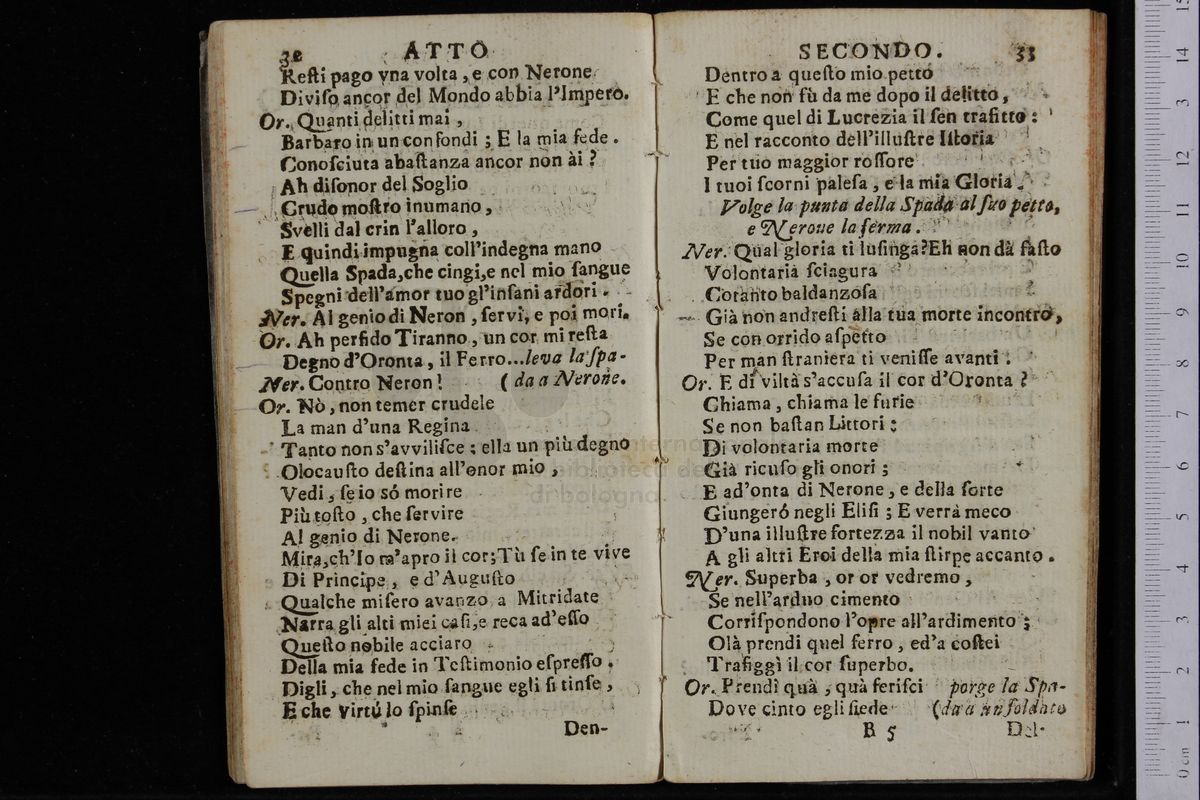 32 ATTO
Resti pago vna volta, e con Nerone
Diviso ancor del Mondo abbia l'Impero.
Or. Quanti delitti mai,
Barbaro in un confondi; E la mia fede.
Conosciuta abastanza ancor non ài?
Ah disonor del Soglio
Crudo mostro inumano,
Svelli dal crin l'alloro,
E quindi impugna coll'indegna mano
Quella Spada, che cingi, e nel mio sangue
Spegni dell'amor tuo gl'insani ardori.
Ner. Al genio di Neron, servi, e poi mori.
Or. Ah perfido Tiranno, un cor mi resta
Degno d'Oronta, il Ferro...leva la spa-
Ner. Contro Neron! (da a Nerone.
Or. Nò, non temer crudele
La man d'una Regina
Tanto non s'avvilisce; ella un più degno
Olocausto destina all'onor mio,
Vedi, se io só morire
Più tosto, che servire
Al genio di Nerone.
Mira, ch'Io m'apro il cor; Tù se in te vive
Di Principe, e d'Augusto
Qualche misero avanzo a Mitridate
Narra gli alti miei casi, e reca ad'esso
Questo nobile acciaro
Della mia fede in Testimonio espresso.
Digli, che nel mio sangue egli si tinse,
E che virtù lo spinse
Den-
SECONDO. 33
Dentro a questo mio petto
E che non fù da me dopo il delitto,
Come quel di Lucrezia il sen trafitto:
E nel racconto dell'illustre Istoria
Per tuo maggior rossore
I tuoi scorni palesa, e la mia Gloria.
Volge la punta della Spada al suo petto,
e Nerone la ferma.
Ner. Qual gloria ti lusinga? Eh non dà fasto
Volontaria sciagura
Cotanto baldanzosa
Già non andresti alla tua morte incontro,
Se con orrido aspetto
Per man straniera ti venisse avanti.
Or. E di viltà s'accusa il cor d'Oronta?
Chiama, chiama le furie
Se non bastan Littori:
Di volontaria morte
Già ricuso gli onori;
E ad'onta di Nerone, e della sorte
Giungeró negli Elisi; E verrà meco
D'una illustre fortezza il nobil vanto
A gli altri Eroi della mia stirpe accanto.
Ner. Superba, or or vedremo,
Se nell'arduo cimento
Corrispondono l'opre all'ardimento;
Olà prendi quel ferro, ed'a costei
Trafiggi il cor superbo.
Or. Prendi quà, quà ferisci porge la Spa-
Dove cinto egli siede (da a un soldato
B 5 Del-